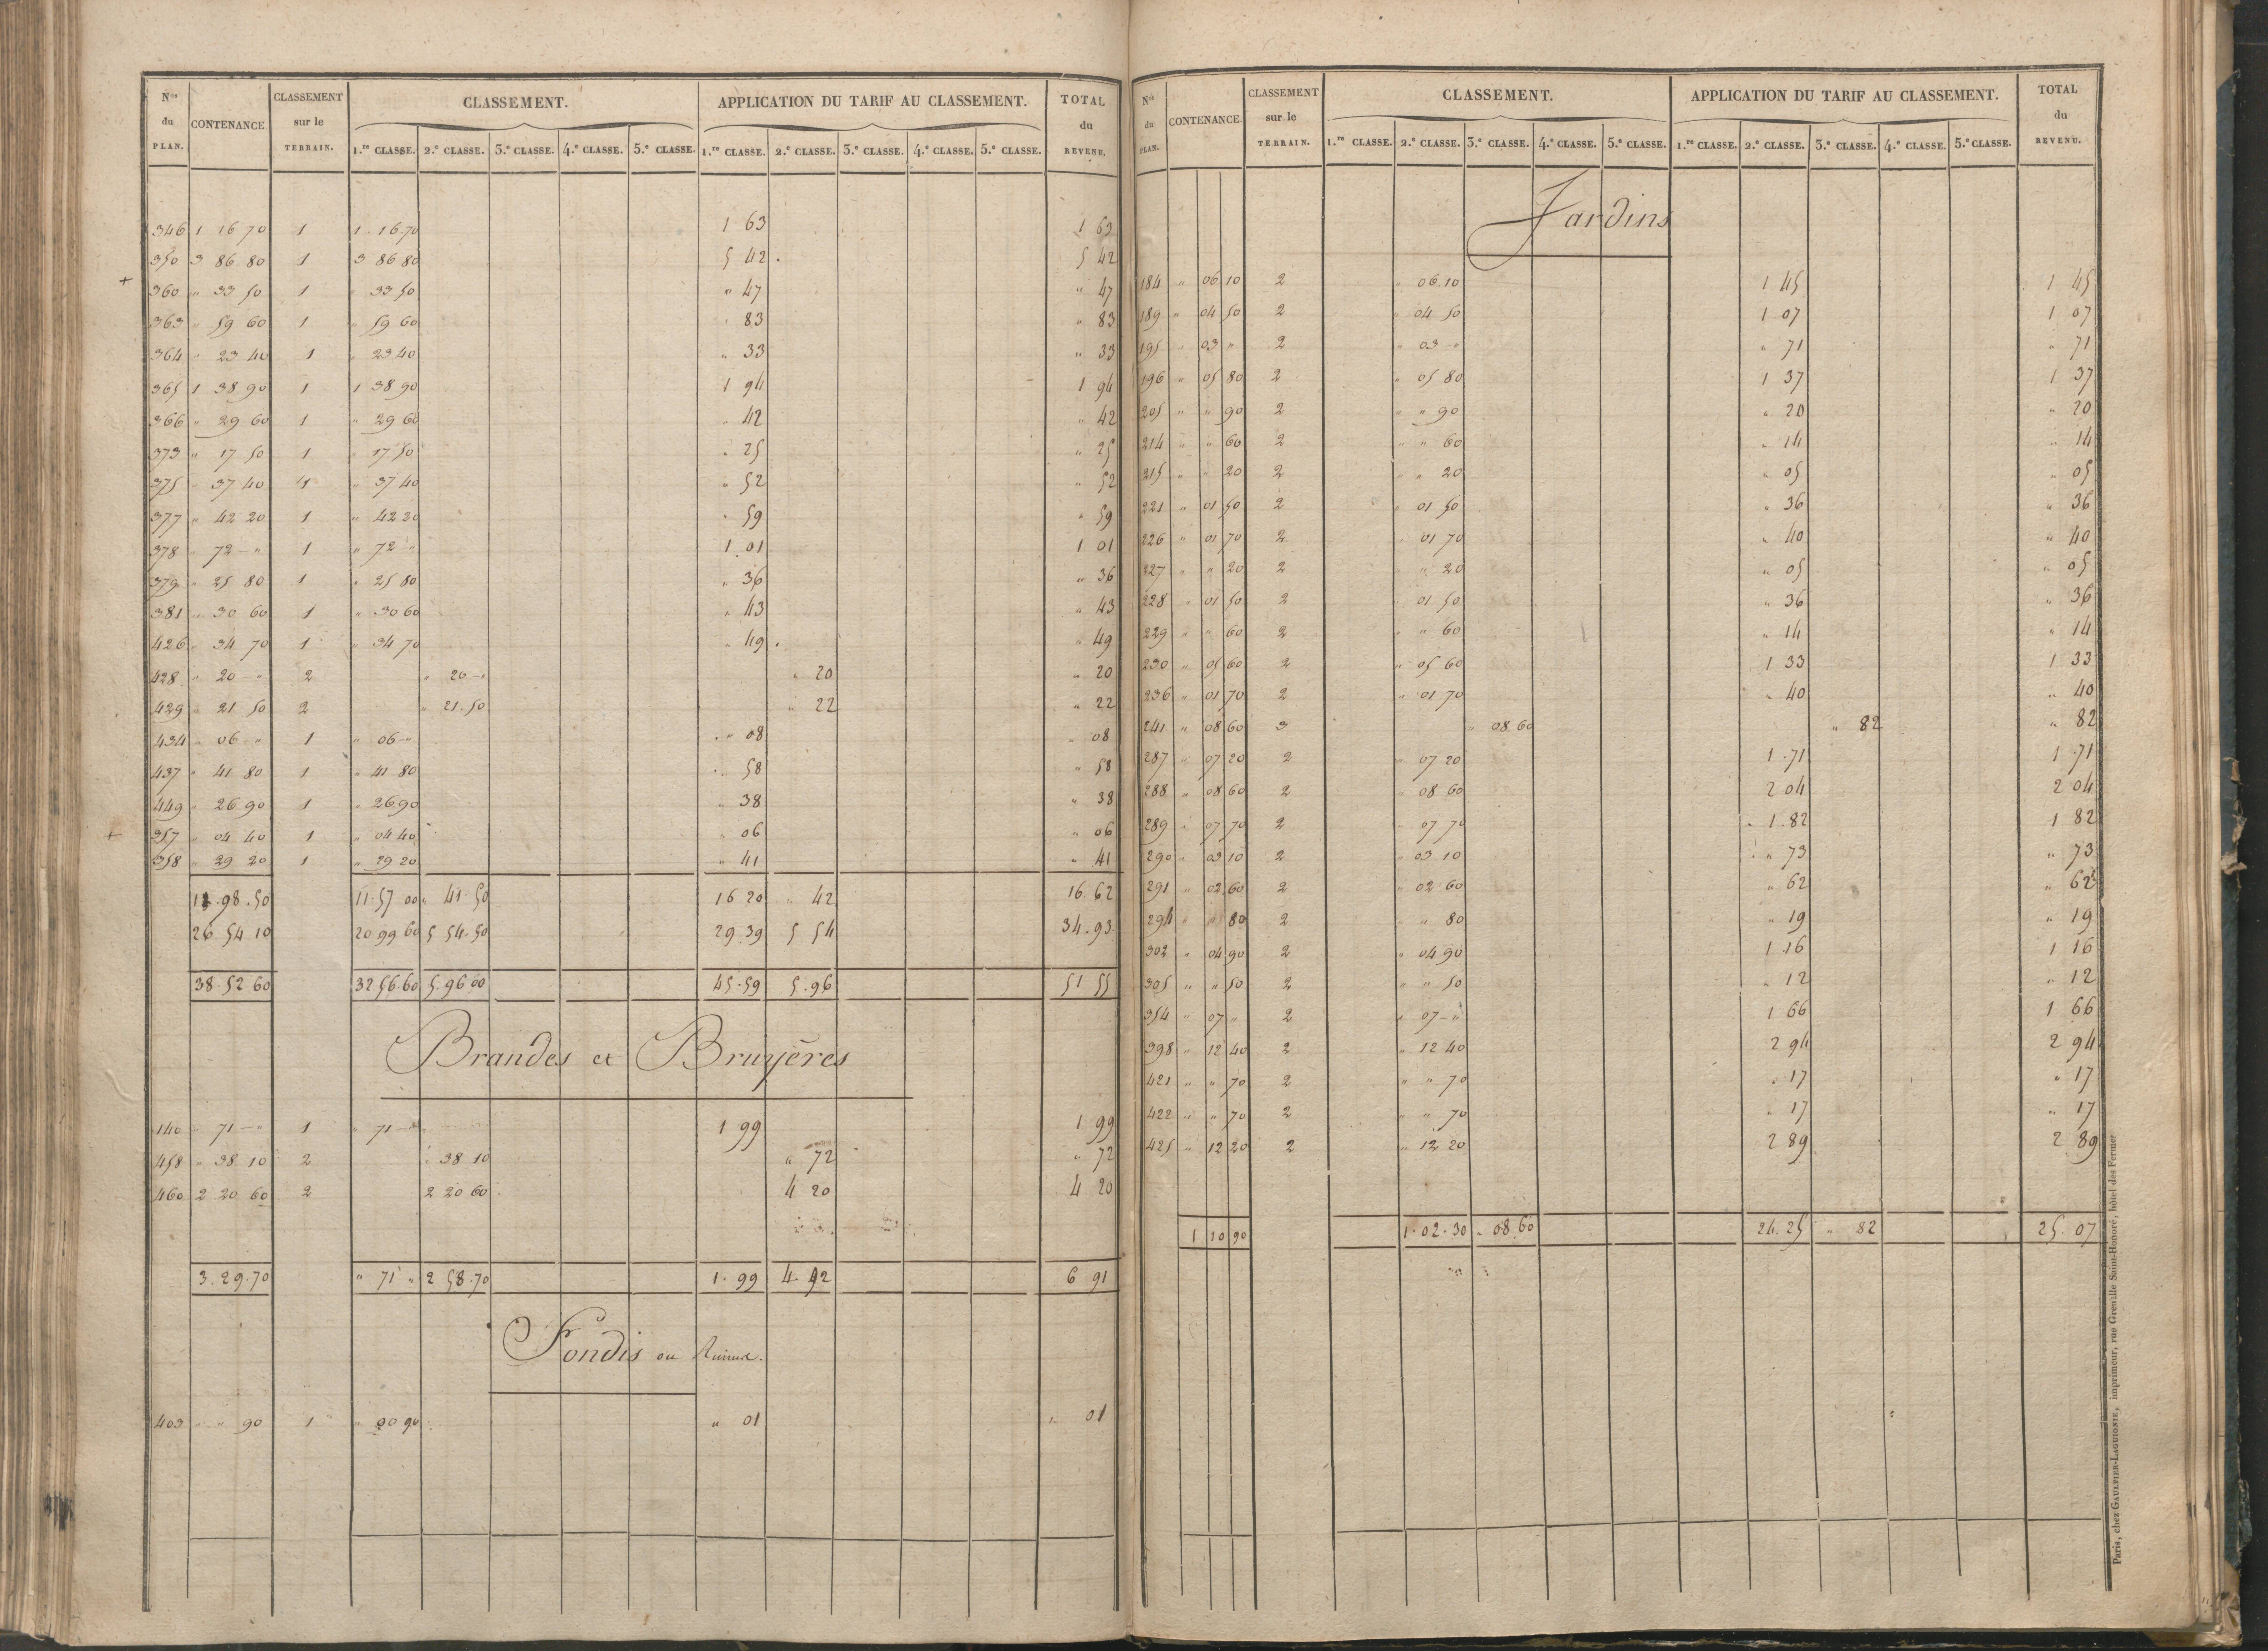 Nos du PLAN. CONTENANCE CLASSEMENT sur le TERRAIN. CLASSEMENT. APPLICATION DU TARIF AU CLASSEMENT. TOTAL du REVENU.
1.re CLASSE. 2.e CLASSE. 3.e CLASSE. 4.e CLASSE. 5.e CLASSE. 1.re CLASSE. 2.e CLASSE. 3.e CLASSE. 4.e CLASSE. 5.e CLASSE.
346 1 16 70 1 1 16 70 1 63 1 63
350 3 86 80 1 3 86 80 5 42 5 42
+ 360 " 33 50 1 " 33 50 " 47 " 47
363 " 59 60 1 " 59 60 " 83 " 83
364 " 23 40 1 " 23 40 " 33 " 33
365 1 38 90 1 1 38 90 1 94 1 94
366 " 29 60 1 " 29 60 " 42 " 42
373 " 17 50 1 " 17 50 " 25 " 25
375 " 37 40 1 " 37 40 " 52 " 52
377 " 42 20 1 " 42 20 " 59 " 59
378 " 72 " 1 " 72 " 1 01 1 01
379 " 25 80 1 " 25 80 " 36 " 36
381 " 30 60 1 " 30 60 " 43 " 43
426 " 34 70 1 " 34 70 " 49 " 49
428 " 20 " 2 " 20 " " 20 " 20
429 " 21 50 2 " 21.50 " 22 " 22
434 " 06 " 1 " 06 " " 08 " 08
437 " 41 80 1 " 41 80 " 58 " 58
449 " 26 90 1 " 26 90 " 38 " 38
+ 357 " 04 40 1 " 04 40 " 06 " 06
358 " 29 20 1 " 29 20 " 41 " 41
11.98.50 11.57 00 " 41 50 16 20 " 42 16.62
26 54 10 20 99 60 5 54.50 29.39 5 54 34.93
38 52 60 32 56.60 5.96 00 45.59 5.96 51 55
Brandes et Bruyères
140 " 71 " 1 " 71 " 1 99 1 99
458 " 38 10 2 " 38 10 " 72 " 72
460 2 20 60 2 2 20 60 4 20 4 20
3.29.70 " 71 " 2 58.70 1.99 4.92 6 91
Fondis ou Ruines.
403 " " 90 1 " 00 90 " 01 " 01
Nos du PLAN. CONTENANCE. CLASSEMENT sur le TERRAIN. CLASSEMENT. APPLICATION DU TARIF AU CLASSEMENT. TOTAL du REVENU.
1.re CLASSE. 2.e CLASSE. 3.e CLASSE. 4.e CLASSE. 5.e CLASSE. 1.re CLASSE. 2.e CLASSE. 3.e CLASSE. 4.e CLASSE. 5.e CLASSE.
Jardins
184 " 06 10 2 " 06.10 1 45 1 45
189 " 04 50 2 " 04 50 1 07 1 07
195 " 03 " 2 " 03 " " 71 " 71
196 " 05 80 2 " 05 80 1 37 1 37
205 " " 90 2 " " 90 " 20 " 20
214 " " 60 2 " " 60 " 14 " 14
215 " " 20 2 " " 20 " 05 " 05
221 " 01 50 2 " 01 50 " 36 " 36
226 " 01 70 2 " 01 70 " 40 " 40
227 " " 20 2 " " 20 " 05 " 05
228 " 01 50 2 " 01 50 " 36 " 36
229 " " 60 2 " " 60 " 14 " 14
230 " 05 60 2 " 05 60 1 33 1 33
236 " 01 70 2 " 01 70 " 40 " 40
241 " 08 60 3 " 08 60 " 82 " 82
287 " 07 20 2 " 07 20 1.71 1.71
288 " 08 60 2 " 08 60 2 04 2 04
289 " 07 70 2 " 07 70 1.82 1 82
290 " 03 10 2 " 03 10 " 73 " 73
291 " 02 60 2 " 02 60 " 62 " 62
294 " " 80 2 " " 80 " 19 " 19
302 " 04 90 2 " 04 90 1.16 1 16
305 " " 50 2 " " 50 " 12 " 12
354 " 07 " 2 " 07 " 1 66 1 66
398 " 12 40 2 " 12 40 2 94 2 94
421 " " 70 2 " " 70 " 17 " 17
422 " " 70 2 " " 70 " 17 " 17
425 " 12 20 2 " 12 20 2 89 2 89
1 10 90 1.02.30 " 08.60 24.25 " 82 25.07
Paris, chez GAULTIER-LAGUIONIE, imprimeur, rue Grenelle Saint-Honoré, hôtel des Fermes